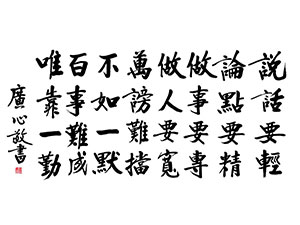 說話要輕
論點要精
做事要專
做人要寬
萬謗難擋
不如一默
百事難成
唯靠一勤
廣心敬書